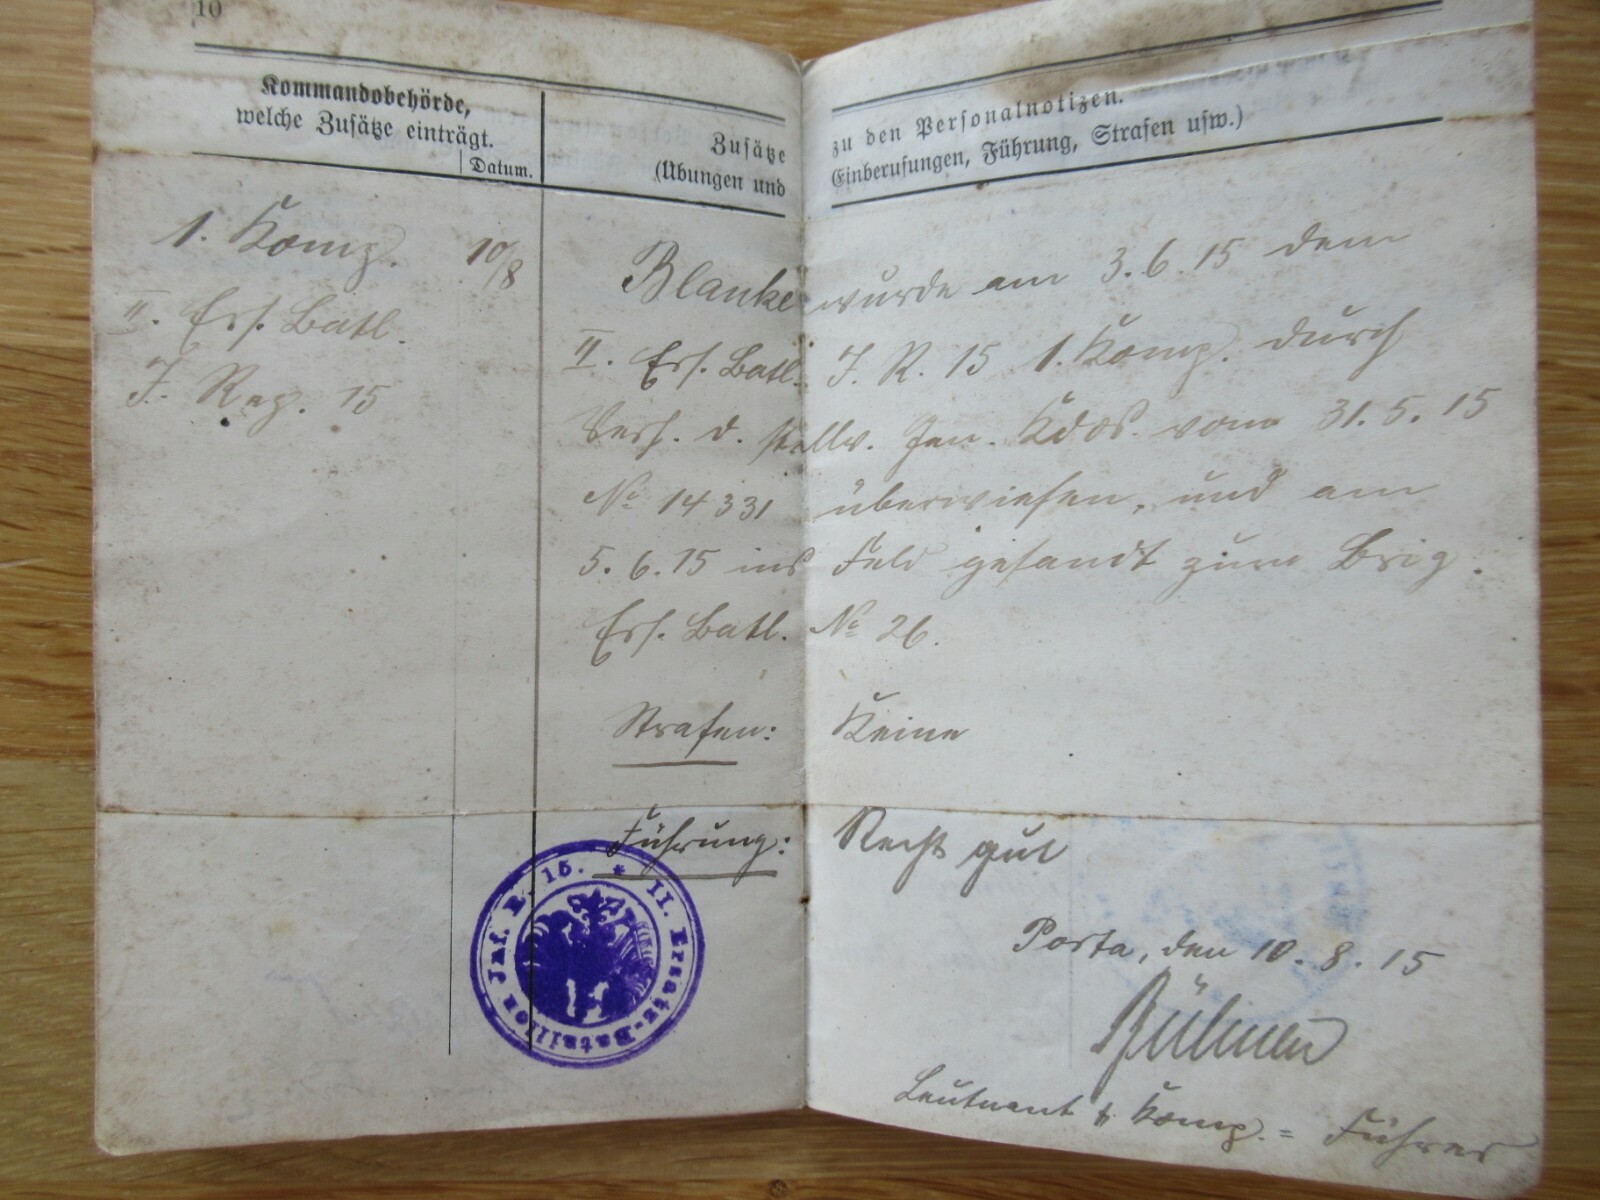 10
Kommandobehörde,
welche Zusätze einträgt.
Datum.
Zusätze zu den Personalnotizen.
(Übungen und Einberufungen, Führung, Strafen usw.)
1. Komp. 10/8
II. Ers. Batl.
J. Reg. 15
Blanke wurde am 3.6.15 dem
II. Ers. Batl. J. R. 15 1. Komp. durch
Verf. d. stellv. Gen. Kdos. vom 31.5.15
No 14331 überwiesen, und am
5.6.15 ins Feld gesandt zum Brig.
Ers. Batl. No 26.
Strafen: Keine
Führung: Recht gut
II. Ersatz-Bataillon Inf. R. 15. *
Porta, den 10.8.15
Leutnant u. Komp.=Führer